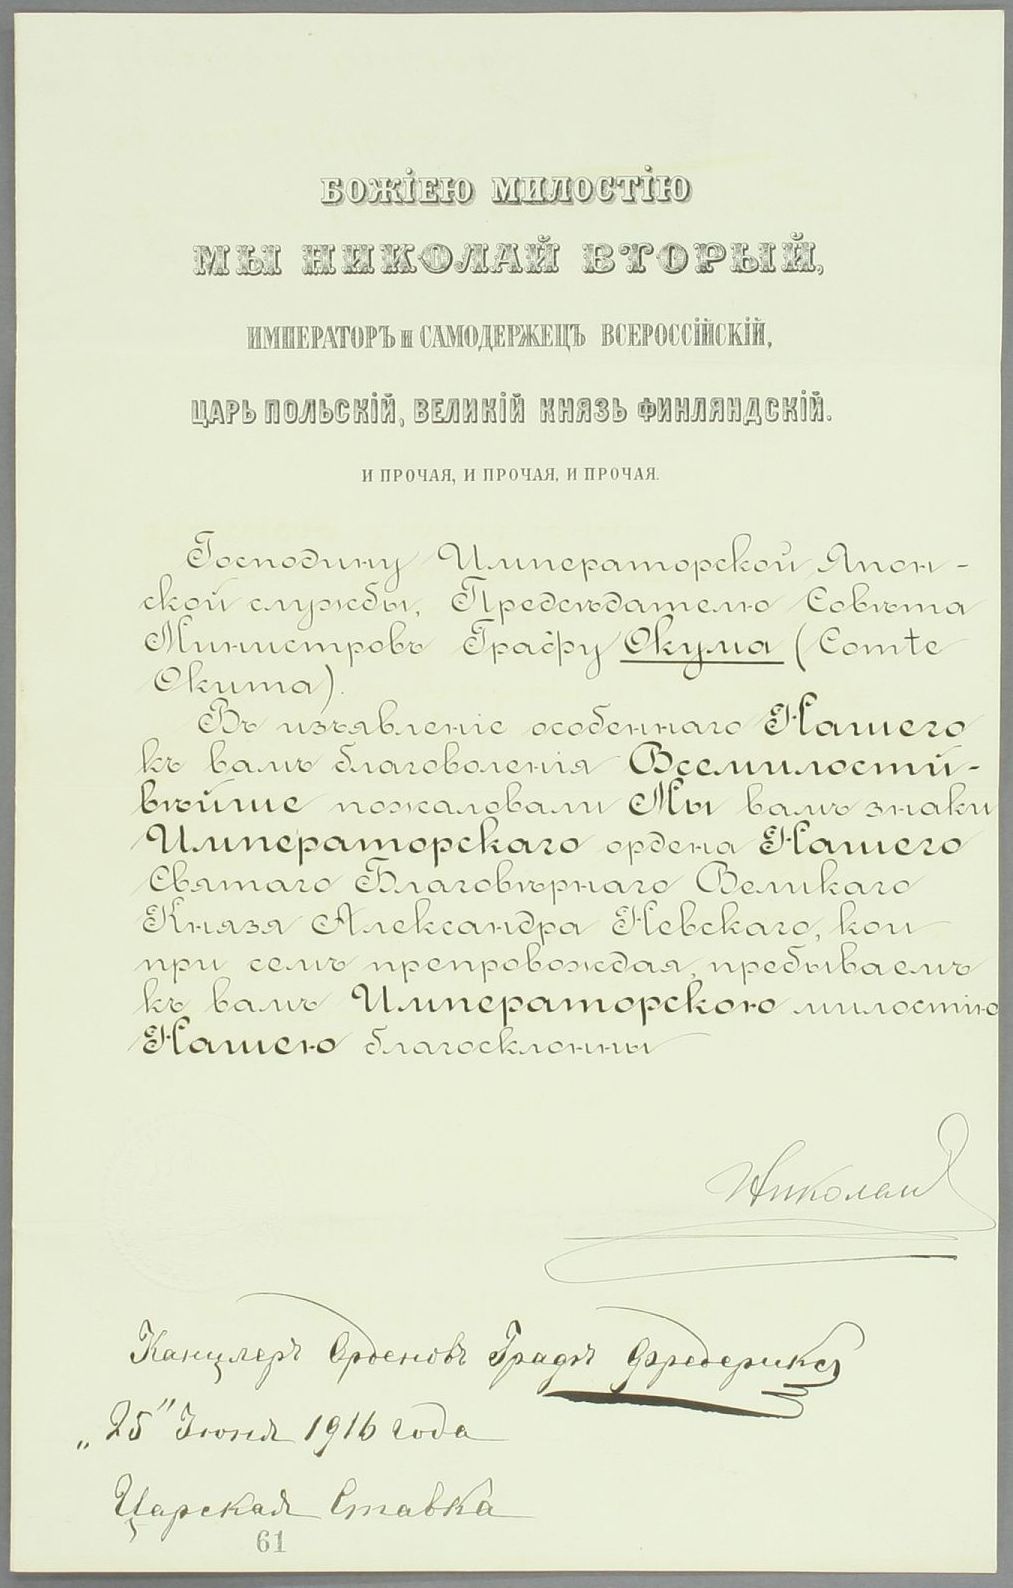 БОЖІЕЮ МИЛОСТІЮ
МЫ НИКОЛАЙ ВТОРЫЙ,
ИМПЕРАТОРЪ и САМОДЕРЖЕЦЪ ВСЕРОССІЙСКІЙ,
ЦАРЬ ПОЛЬСКІЙ, ВЕЛИКІЙ КНЯЗЬ ФИНЛЯНДСКІЙ.
И ПРОЧАЯ, И ПРОЧАЯ, И ПРОЧАЯ.
Господину Императорской Япон-
ской службы, Предсѣдателю Совѣта
Министровъ Графу Окума (Comte
Okuma).
Въ изъявленіе особеннаго Нашего
къ вамъ благоволенія Всемилости-
вѣйше пожаловали Мы вамъ знаки
Императорскаго ордена Нашего
Святаго Благовѣрнаго Великаго
Князя Александра Невскаго, кои
при семъ препровождая, пребываемъ
къ вамъ Императорскою милостію
Нашею благосклонны
Николай
Канцлеръ Орденовъ Графъ Фредериксъ
„25" Іюня 1916 года
Царская Ставка
61